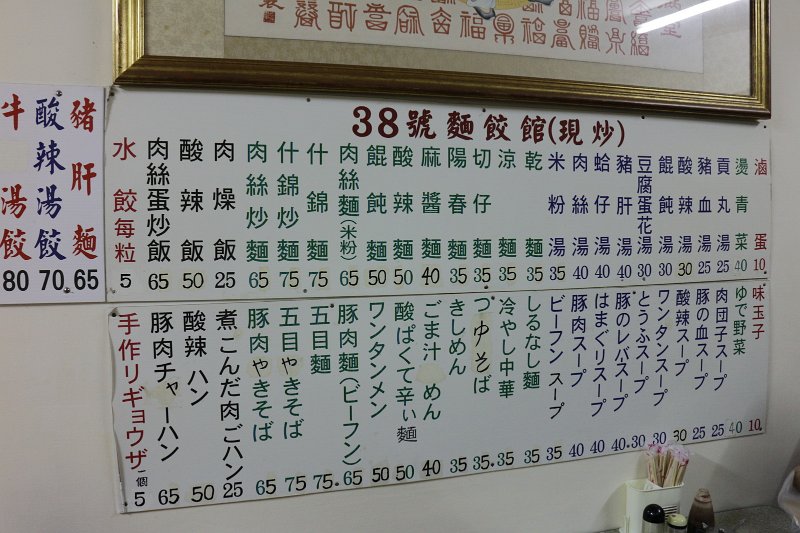 38號麵餃館(現炒)
滷蛋 10
燙青菜 40
貢丸湯 25
豬血湯 25
酸辣湯 30
餛飩湯 30
豆腐蛋花湯 30
豬肝湯 40
蛤仔湯 40
肉絲湯 40
米粉湯 35
乾麵 35
涼麵 35
切仔麵 35
陽春麵 35
麻醬麵 40
酸辣麵 50
餛飩麵 50
肉絲麵(米粉) 65
什錦麵 75
什錦炒麵 75
肉絲炒麵 65
肉燥飯 25
酸辣飯 50
肉絲蛋炒飯 65
水餃每粒 5
味玉子 10
ゆで野菜 40
肉団子スープ 25
豚の血スープ 25
酸辣スープ 30
ワンタンスープ 30
とうふスープ 30
豚のレバスープ 40
はまぐリスープ 40
豚肉スープ 40
ビーフンスープ 35
しるなし麵 35
冷やし中華 35
つゆそば 35
きしめん 35
ごま汁めん 40
酸ぱくて辛い麵 50
ワンタンメン 50
豚肉麵(ビーフン) 65
五目麵 75
五目やきそば 75
豚肉やきそば 65
煮こんだ肉ごハン 25
酸辣ハン 50
豚肉チャーハン 65
手作リギョウザ一個 5
豬肝麵 65
酸辣湯餃 70
牛湯餃 80